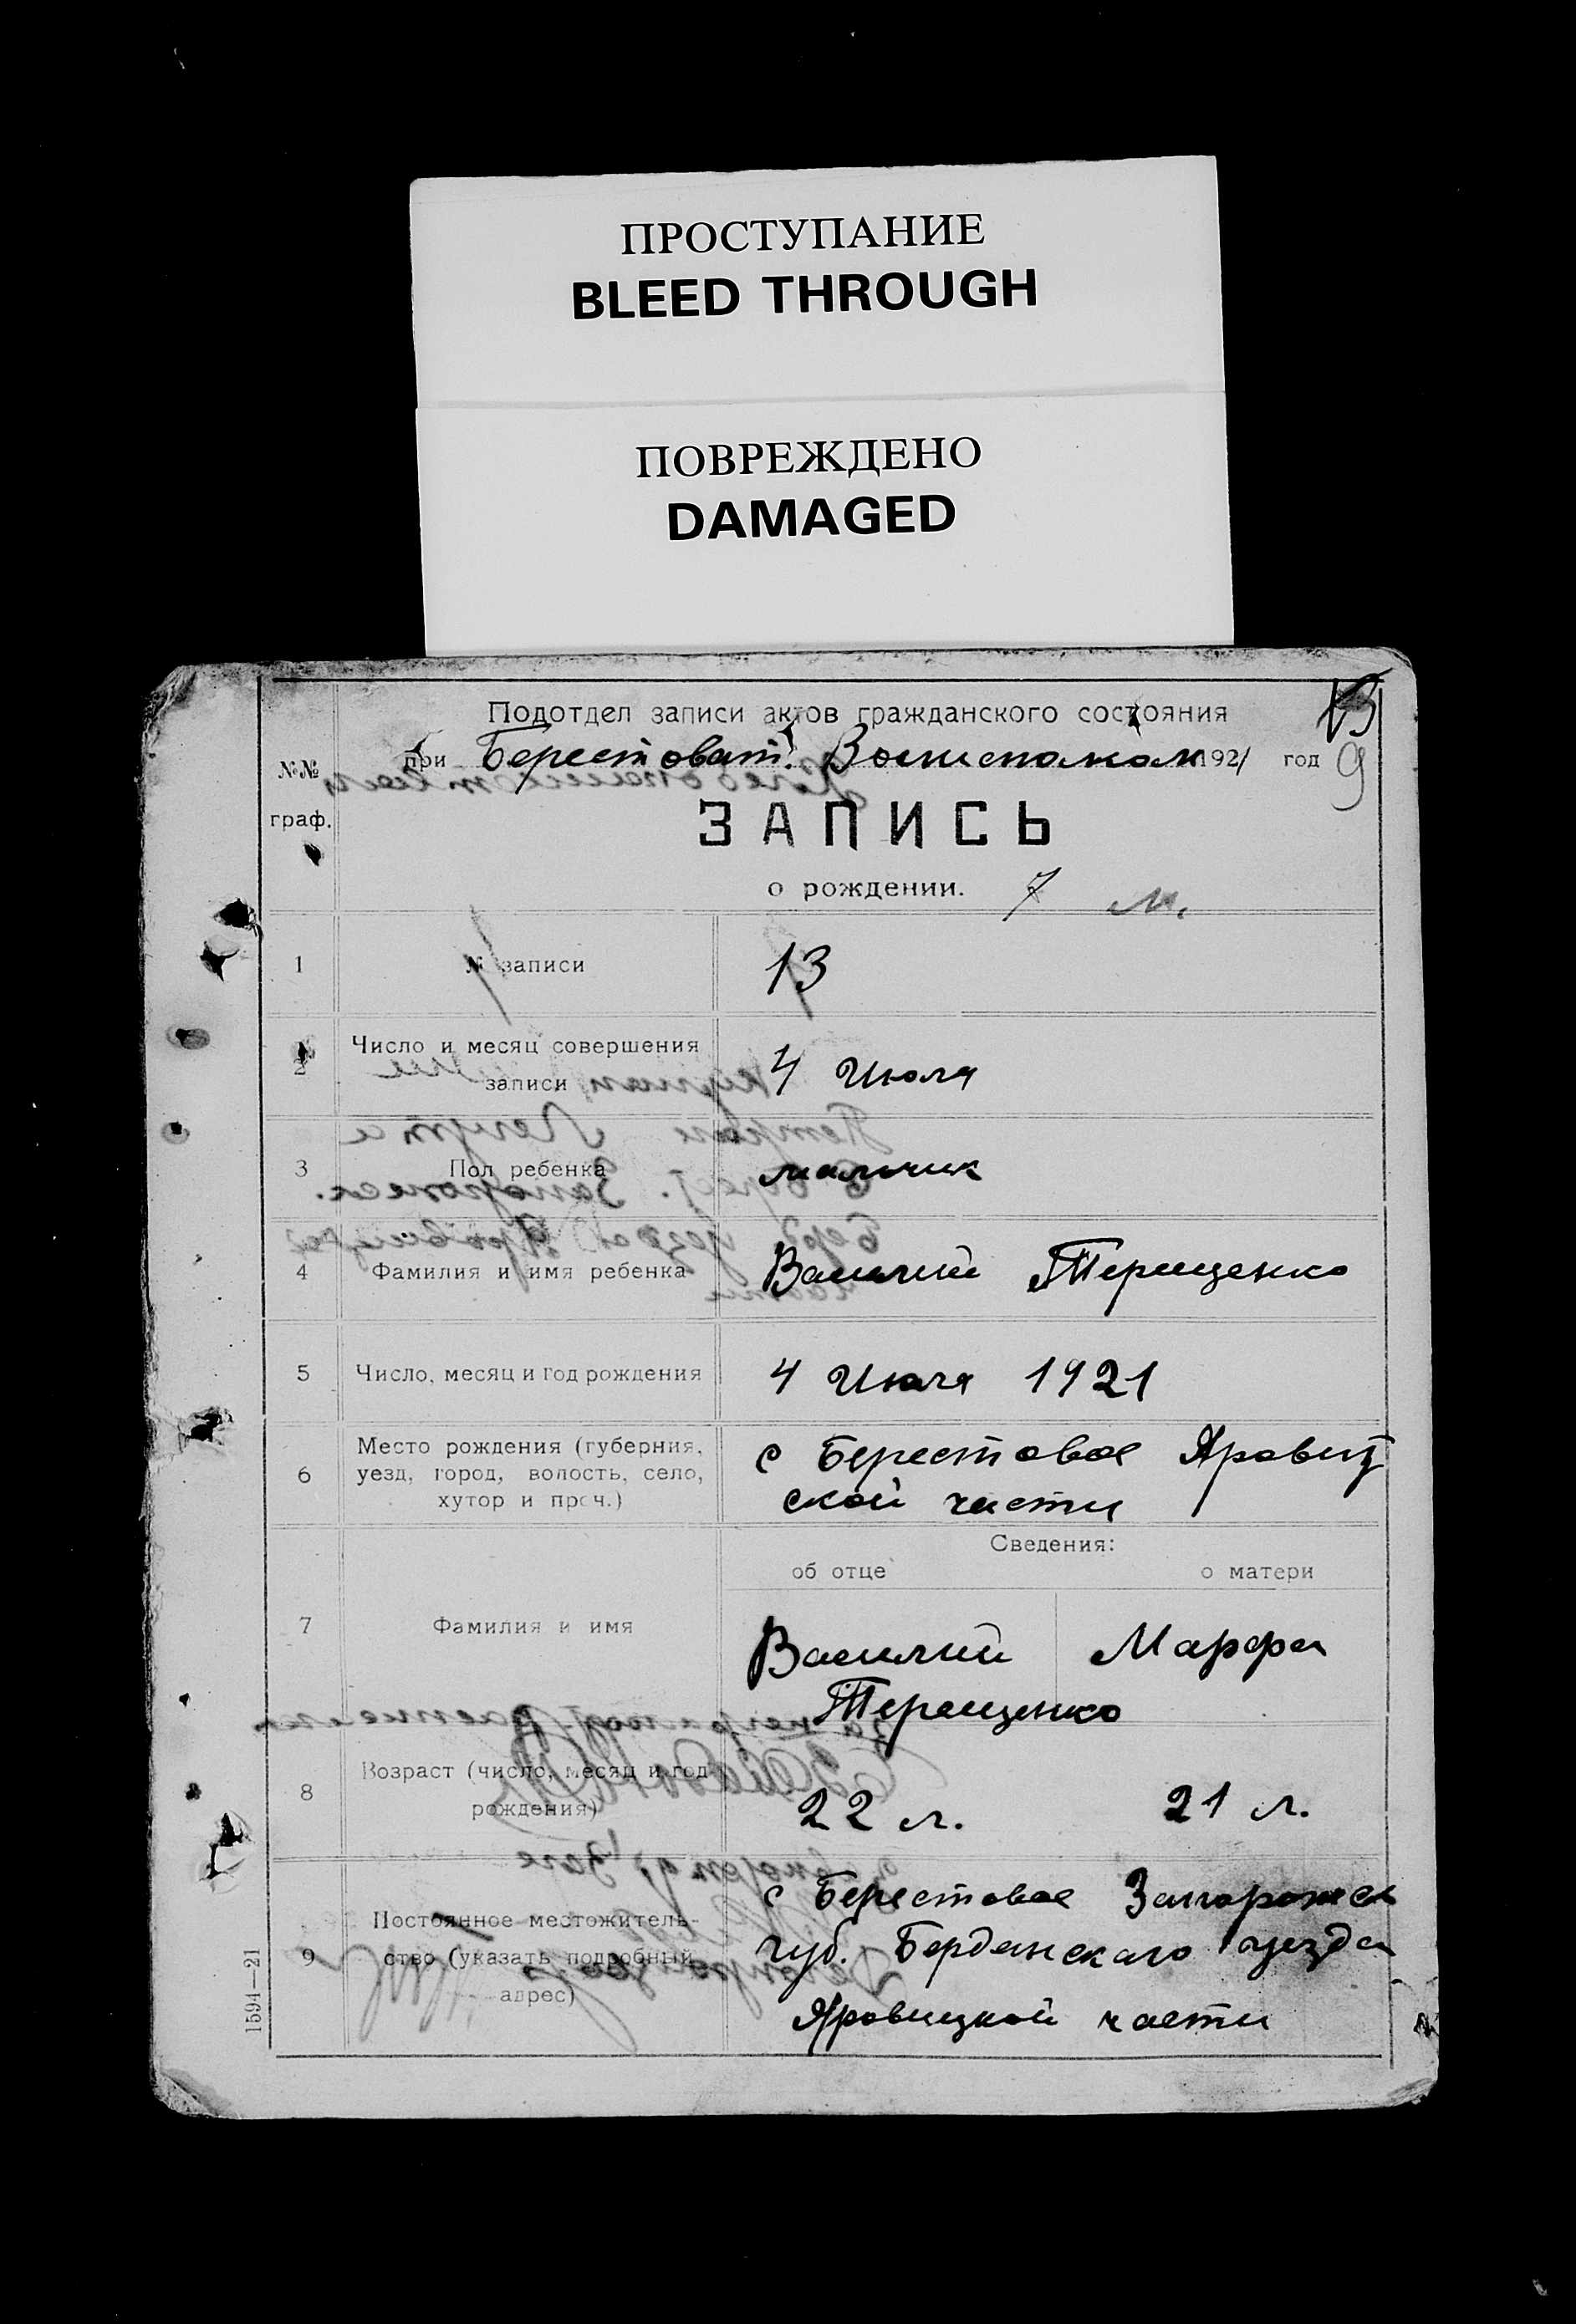 ПРОСТУПАНИЕ
BLEED THROUGH
ПОВРЕЖДЕНО
DAMAGED
Подотдел записи актов гражданского состояния
13
при Берестоват. 1921 год
9
№№
граф.
ЗАПИСЬ
о рождении. 7 м.
1 № записи 13
2 Число и месяц совершения
записи 4 Июля
3 Пол ребенка мальчик
4 Фамилия и имя ребенка Василий Терещенко
5 Число, месяц и год рождения 4 Июля 1921
6 Место рождения (губерния,
уезд, город, волость, село,
хутор и проч.)
с Берестовое Яровиц
ской части
Сведения:
об отце о матери
7 Фамилия и имя
Василий Марфа
Терещенко
8 Возраст (число, месяц и год
рождения)
22 л. 21 л.
9 Постоянное местожитель-
ство (указать подробный
адрес)
с Берестовое Запорожск
губ. Бердянскаго уезда
Яровицкой части
1594—21